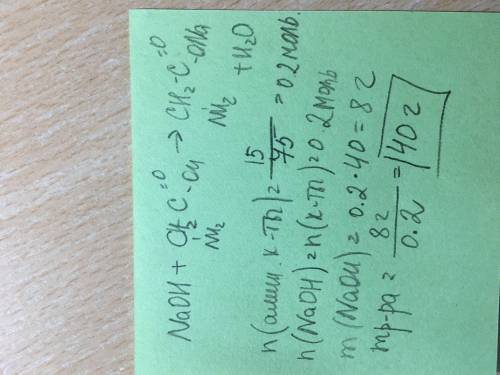 NaOH + CH₂-C=O-OH → CH₂-C=O-ONa
NH₂ NH₂ + H₂O
n(амин. к-ты) = 15/75 = 0.2 моль.
n(NaOH) = n(к-ты) = 0.2 моль
m(NaOH) = 0.2 · 40 = 8 г
mр-ра = 8г/0.2 = 40 г